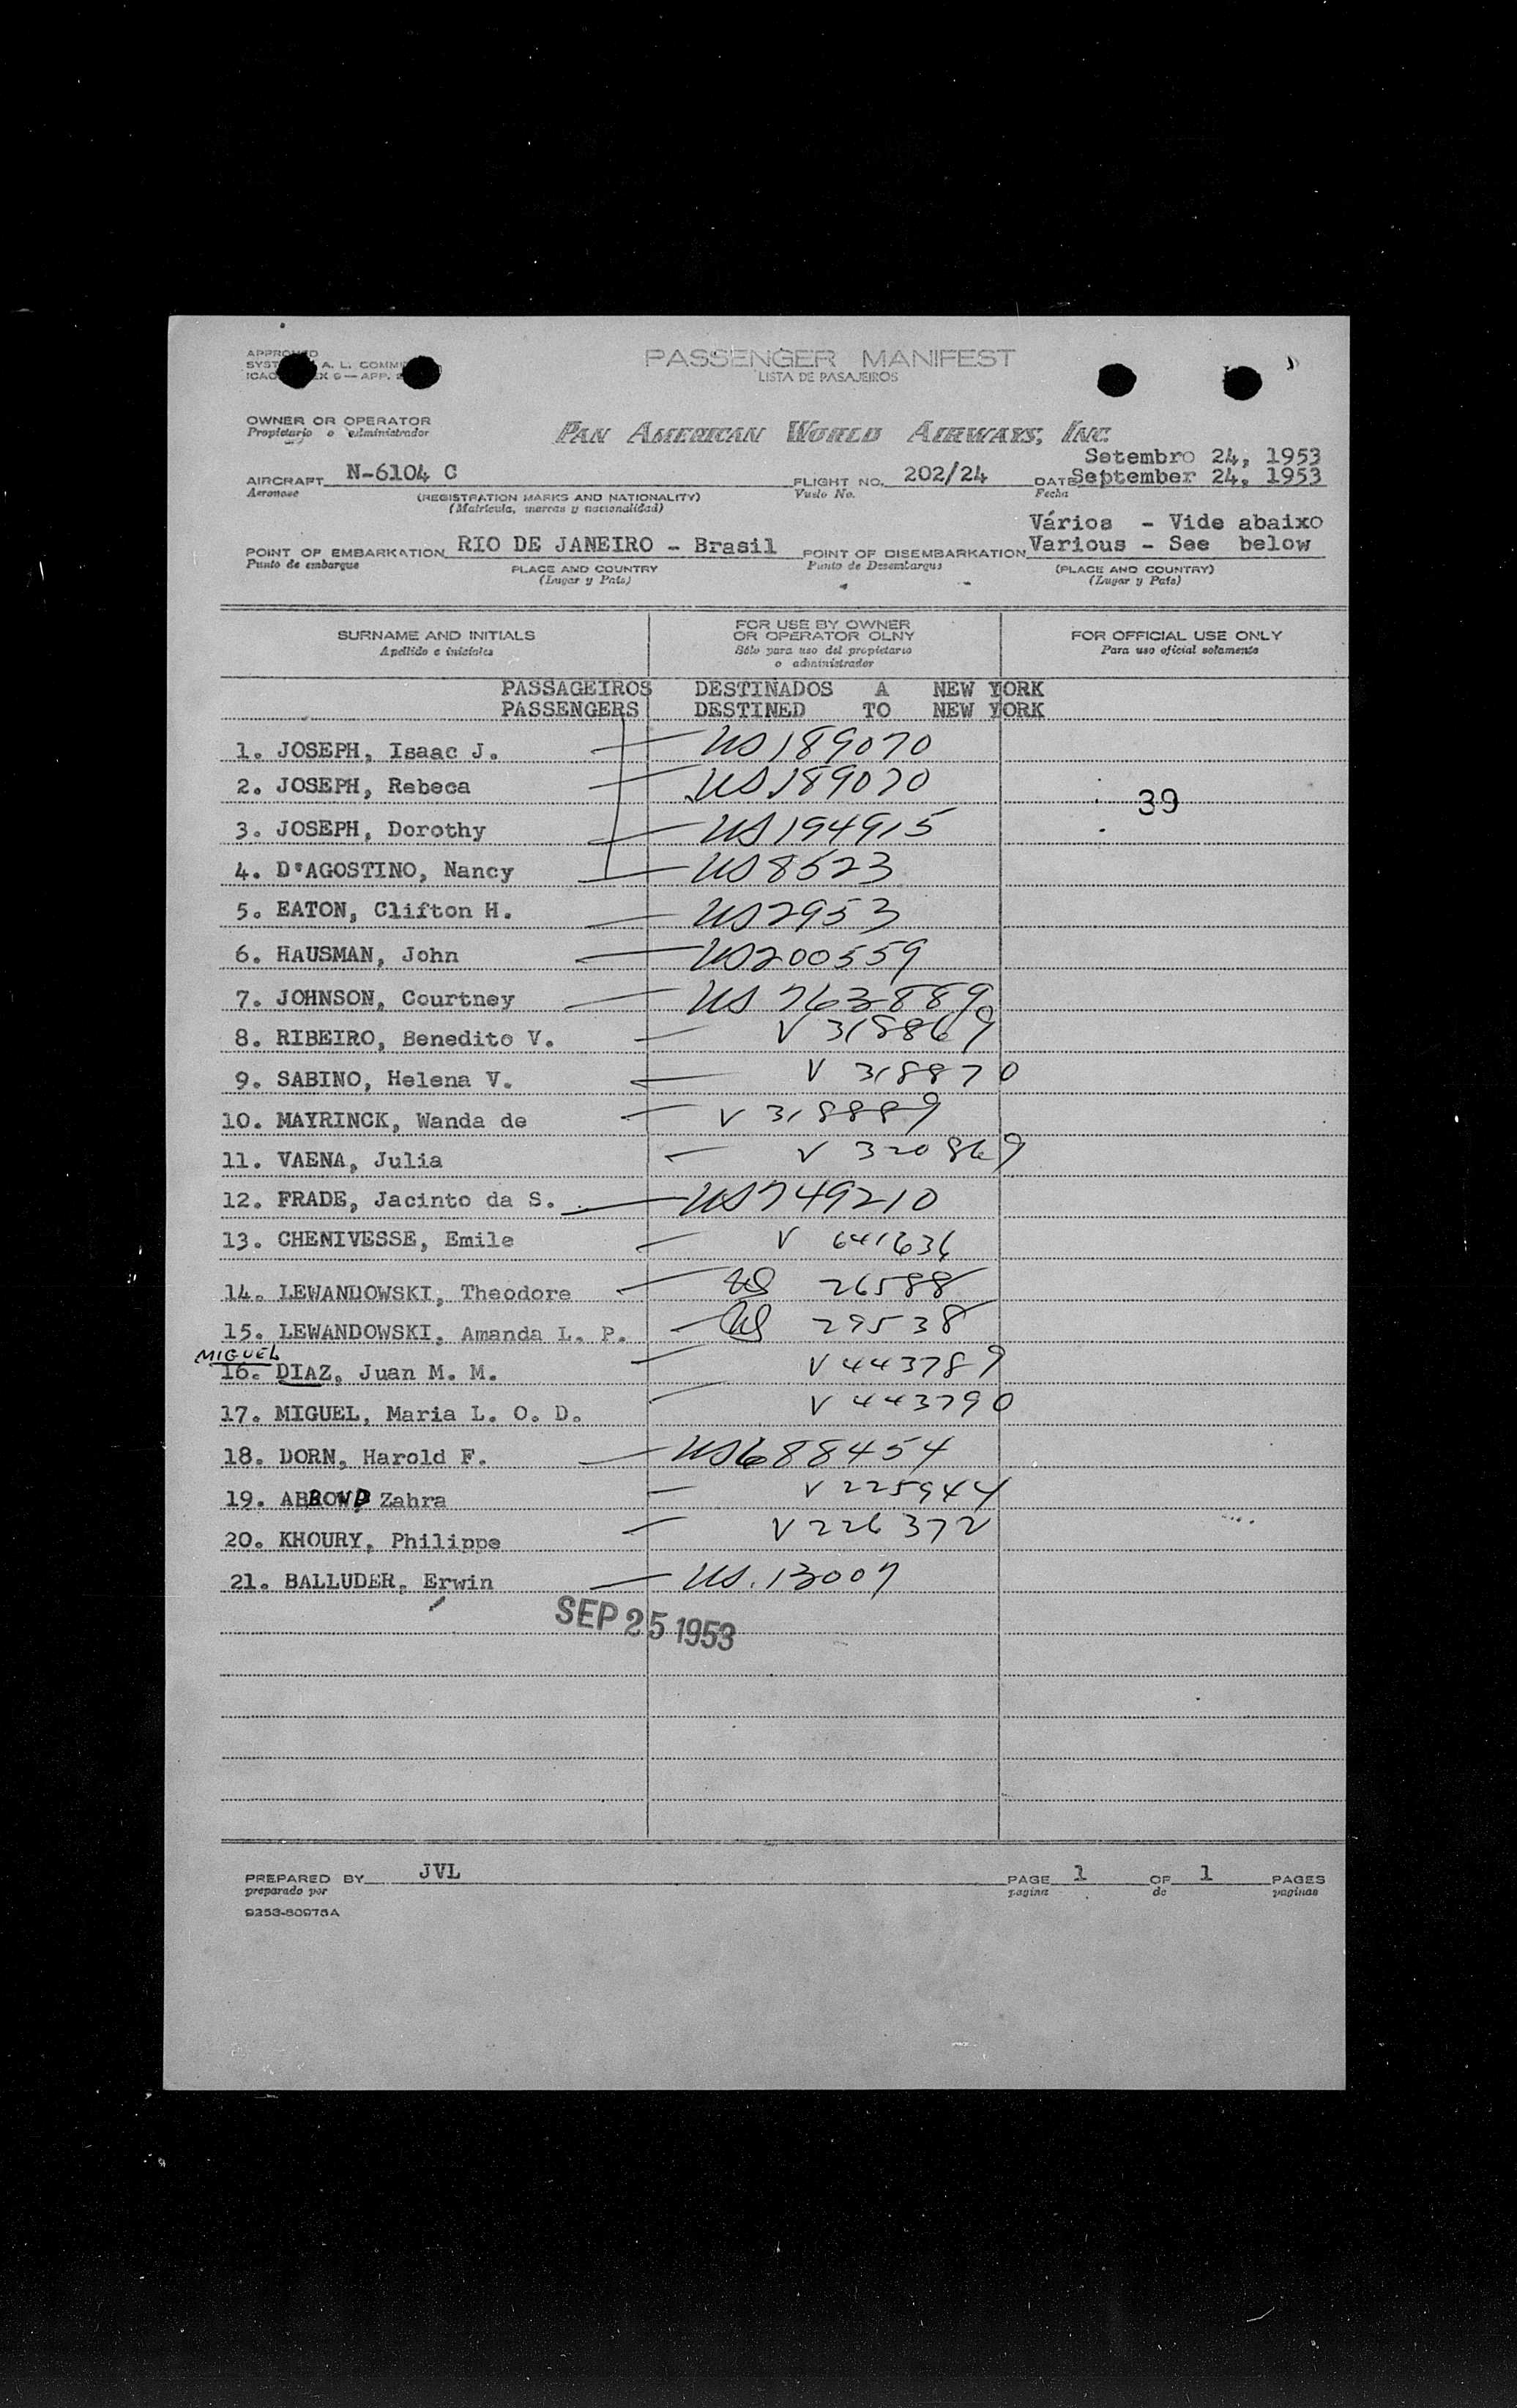 PASSENGER MANIFEST
LISTA DE PASAJEIROS
OWNER OR OPERATOR
Propietario o administrador
PAN AMERICAN WORLD AIRWAYS, INC.
Setembro 24, 1953
AIRCRAFT N-6104 C FLIGHT NO. 202/24 DATE September 24, 1953
Aeronave (REGISTRATION MARKS AND NATIONALITY) Vuelo No. Fecha
(Matricula, marcas y nacionalidad)
Vários - Vide abaixo
POINT OF EMBARKATION RIO DE JANEIRO - Brasil POINT OF DISEMBARKATION Various - See below
Punto de embarque PLACE AND COUNTRY Punto de Desembarque (PLACE AND COUNTRY)
(Lugar y País) (Lugar y País)
SURNAME AND INITIALS FOR USE BY OWNER OR OPERATOR OLNY FOR OFFICIAL USE ONLY
Apellido e iniciales Sólo para uso del propietario o administrador Para uso oficial solamente
PASSAGEIROS DESTINADOS A NEW YORK
PASSENGERS DESTINED TO NEW YORK
1. JOSEPH, Isaac J. US 189070
2. JOSEPH, Rebeca US 189070
39
3. JOSEPH, Dorothy US 194915
4. D'AGOSTINO, Nancy US 8523
5. EATON, Clifton H. US 2953
6. HAUSMAN, John US 200559
7. JOHNSON, Courtney US 763889
8. RIBEIRO, Benedito V. V 318869
9. SABINO, Helena V. V 318870
10. MAYRINCK, Wanda de V 318889
11. VAENA, Julia V 320869
12. FRADE, Jacinto da S. US 749210
13. CHENIVESSE, Emile V 641636
14. LEWANDOWSKI, Theodore US 26588
15. LEWANDOWSKI, Amanda L. P. US 29538
MIGUEL
16. DIAZ, Juan M. M. V 443789
17. MIGUEL, Maria L. O. D. V 443790
18. DORN, Harold F. US 688454
19. Zahra V 225944
20. KHOURY, Philippe V 226372
21. BALLUDER, Erwin US. 13007
SEP 25 1953
PREPARED BY JVL PAGE 1 OF 1 PAGES
preparado por pagina de paginas
9253-80975A